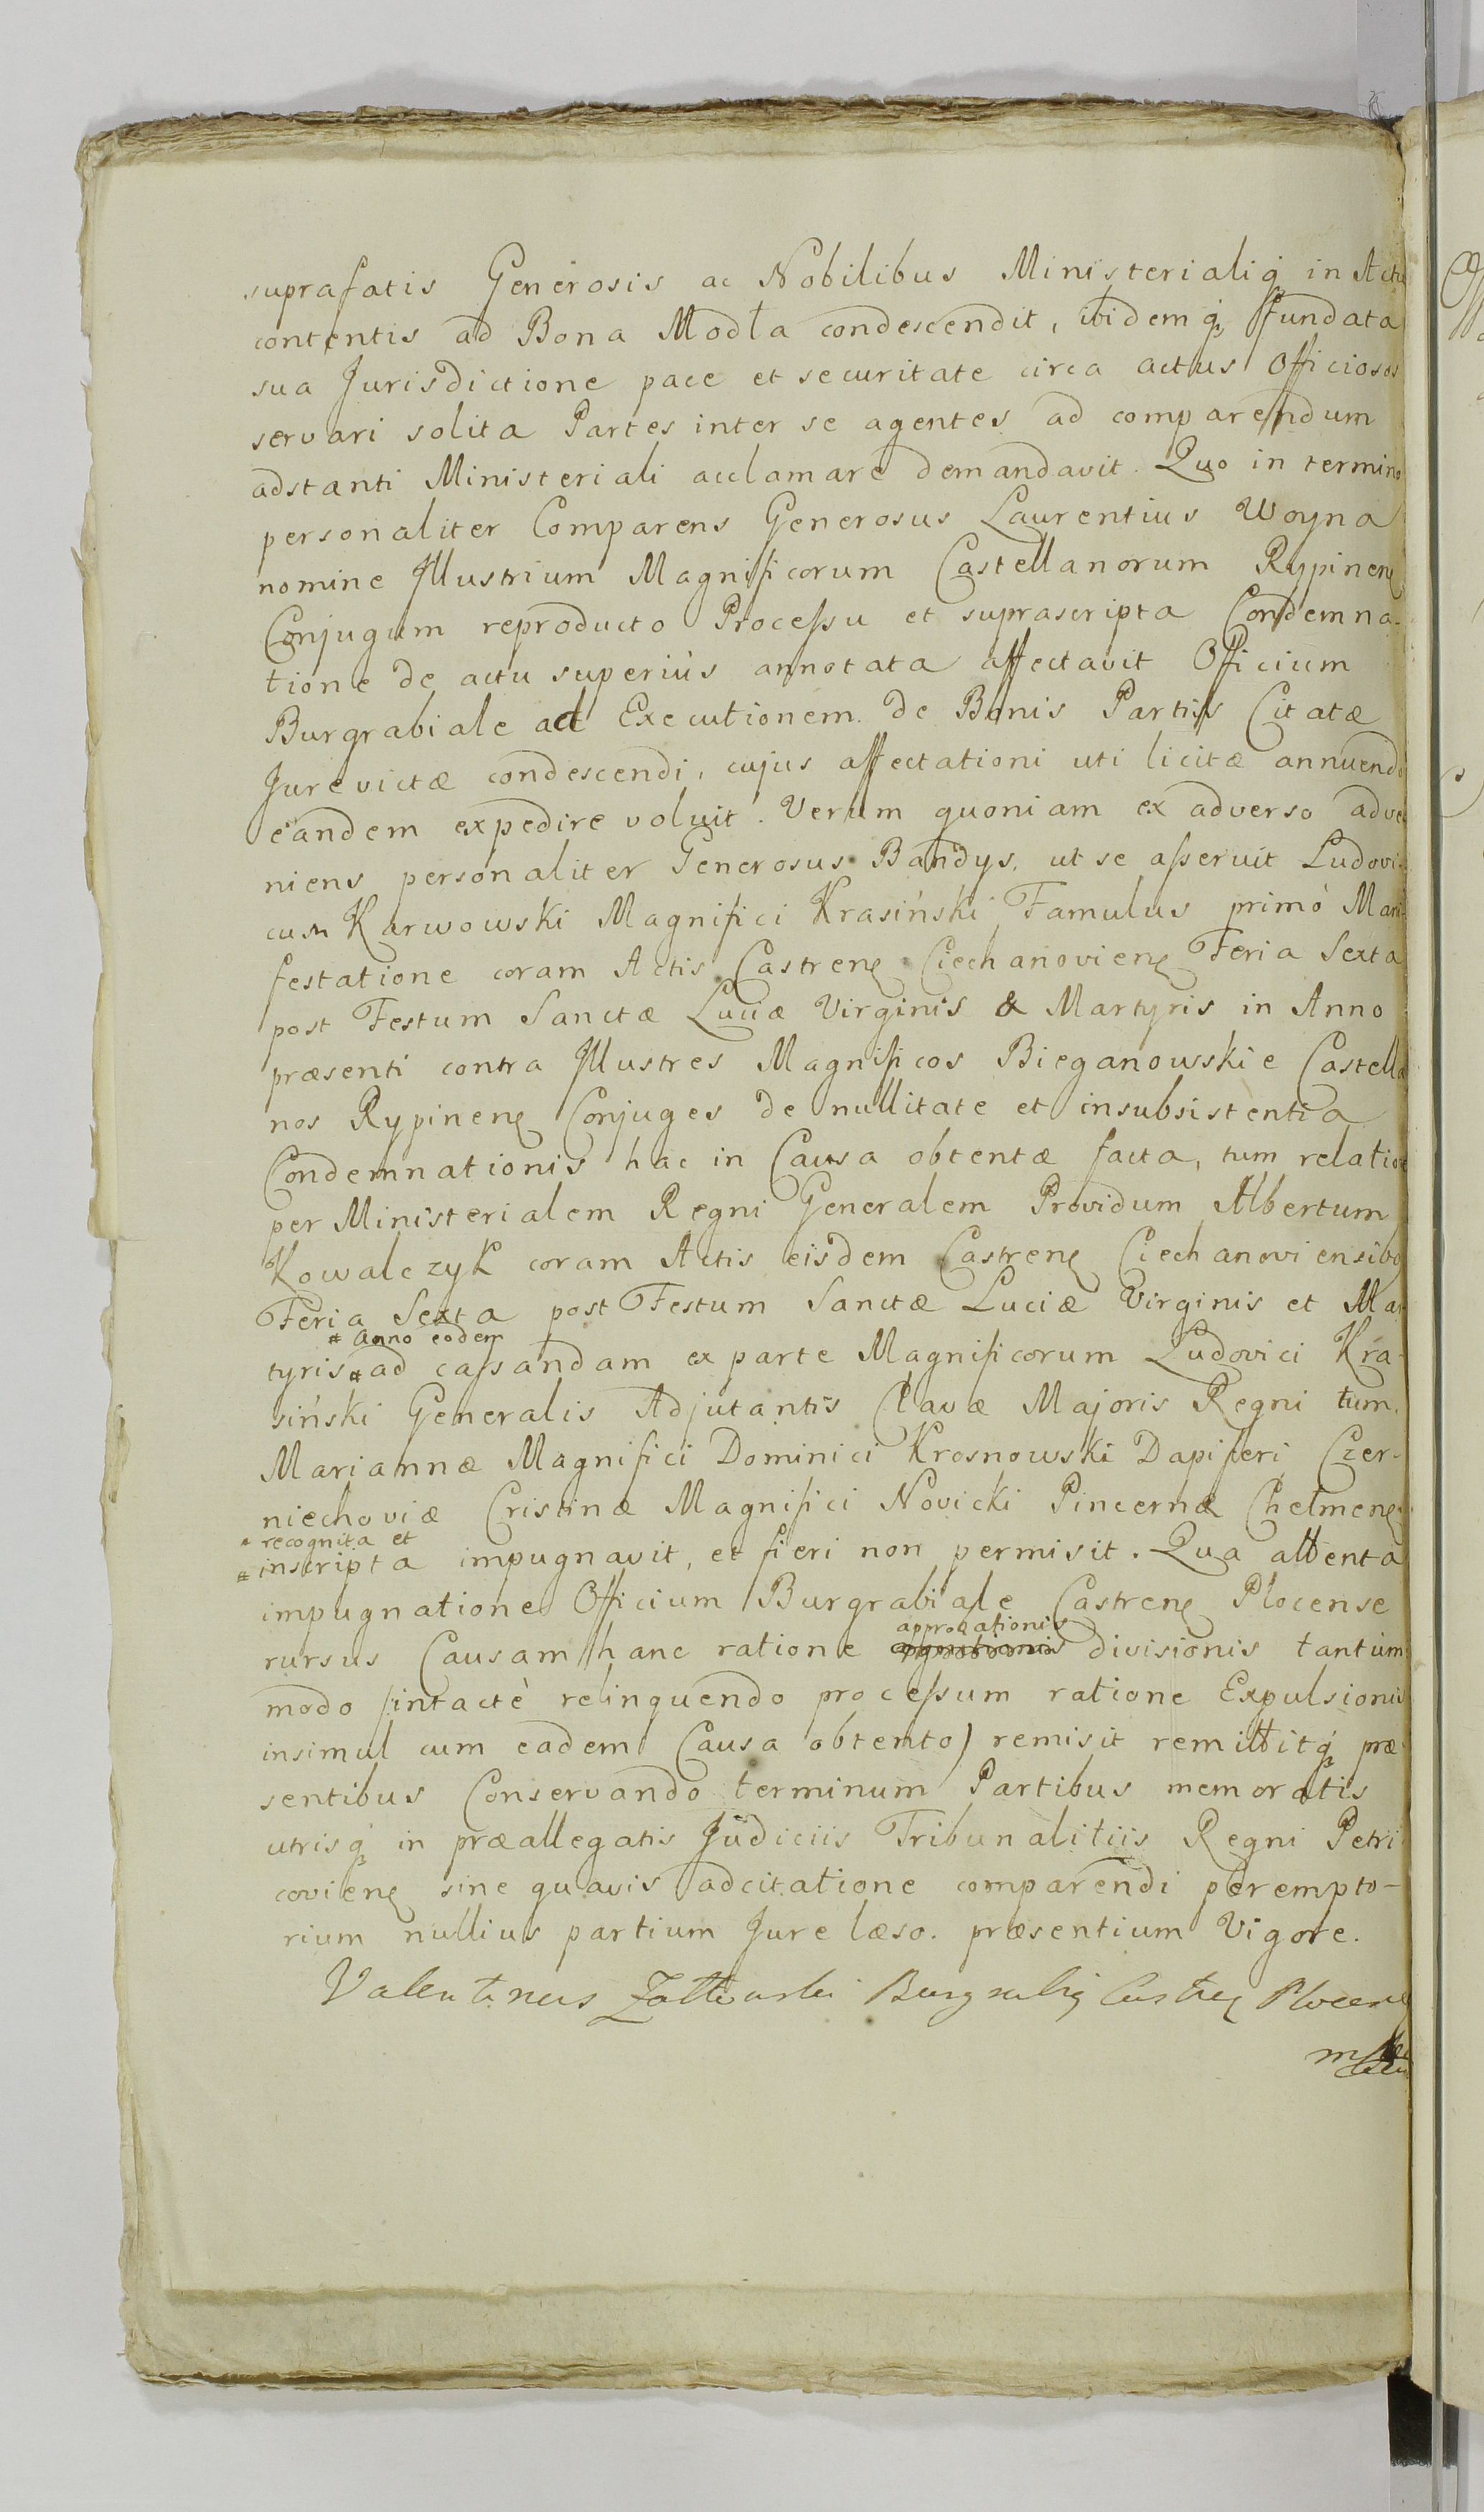 suprafatis Generosis ac Nobilibus Ministerialiq́ꝫ in Actu
contentis ad Bona Modła condescendit, ibidemq́ꝫ fundata
sua Jurisdictione pace et securitate circa actus Officiosos
servari solita Partes inter se agentes ad comparendum
adstanti Ministeriali acclamare demandavit. Quo in termino
personaliter Comparens Generosus Laurentius Woyna
nomine Jllustrium Magnificorum Castellanorum Rypinenꝭ
Conjugum reproducto Processu et suprascripta Condemna-
tione de actu superiùs annotata affectavit Officium
Burgrabiale ad Executionem de Bonis Partis Citatæ
Jurevictæ condescendi, cujus affectationi uti licitæ annuendo
eandem expedire voluit. Verum quoniam ex adverso adve
niens personaliter Generosus Bandys, ut se asseruit Ludovi-
cus Karwowski Magnifici Krasiński Famulus primò Mani
festatione coram Actis Castrenꝭ Ciechanovienꝭ Feria Sexta
post Festum Sanctæ Luciæ Virginis & Martyris in Anno
præsenti contra Jllustres Magnificos Bieganowskie Castella
nos Rypinenꝭ Conjuges de nullitate et insubsistentia
Condemnationis hac in Causa obtentæ facta, tum relatione
per Ministerialem Regni Generalem Providum Albertum
Kowalczyk coram Actis eisdem Castrenꝭ Ciechanoviensibꝰ
Feria Sexta post Festum Sanctæ Luciæ Virginis et Mar
# anno eodem
tyris # ad cassandam ex parte Magnificorum Ludovici Kra-
siński Generalis Adjutantis Clavæ Majoris Regni tum
Mariannæ Magnifici Dominici Krosnowski Dapiferi Czer-
niechoviæ Cristinæ Magnifici Novicki Pincernæ Chełmenꝭ
# recognita et
# inscripta impugnavit, et fieri non permisit. Qua attenta
impugnatione Officium Burgrabiale Castrenꝭ Plocense
approbationis
rursus Causam hanc ratione divisionis tantùm
modo (intactè relinquendo processum ratione Expulsionis
insimul cum eadem Causa obtento) remisit remittitq́ꝫ præ
sentibus Conservando terminum Partibus memoratis
utrisq́ꝫ in præallegatis Judiciis Tribunalitiis Regni Petri
covienꝭ sine quavis adcitatione comparendi perempto-
rium nullius partium Jure læso. præsentium Vigore.
Valentinus Burgrabiꝭ Castrenꝭ Plocenꝭ